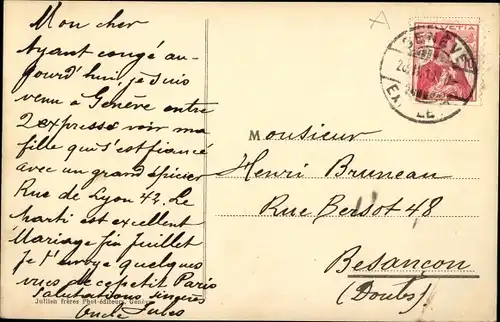 Mon cher
Ayant congé au-
jourd'hui, je suis
venu à Genève entre
2 express voir ma
fille qui s'est fiancé
avec un grand épicier
Rue de Lyon 42. Le
parti est excellent
Mariage fin juillet
Je t'envoye quelques
vues de ce petit Paris
Salutations sincères
Oncle Jules
Jullien frères Phot-éditeurs, Genève
HELVETIA
GENÈVE
M
Monsieur
Henri Bruneau
Rue Bersot 48
Besançon
(Doubs)